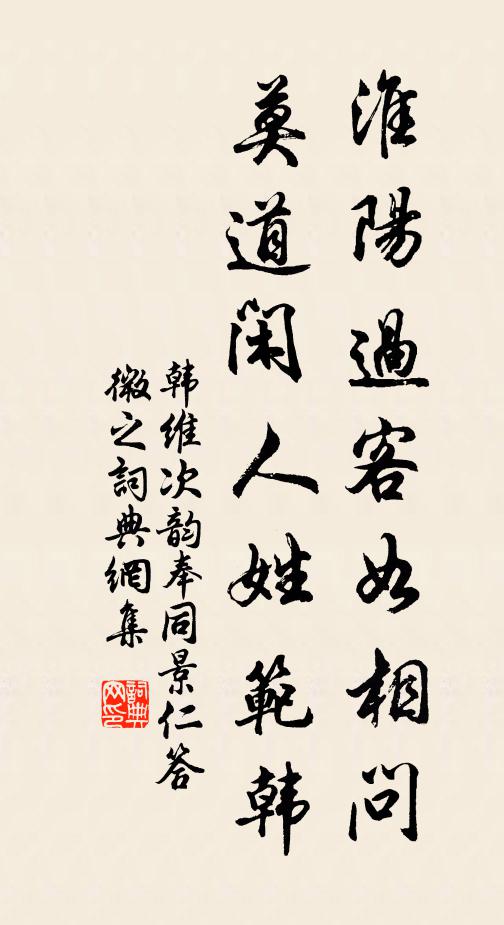 淮陽過客如相問
莫道閑人姓範韓
韩維次韵奉同景仁答
微之詞典網集
詞典
网印